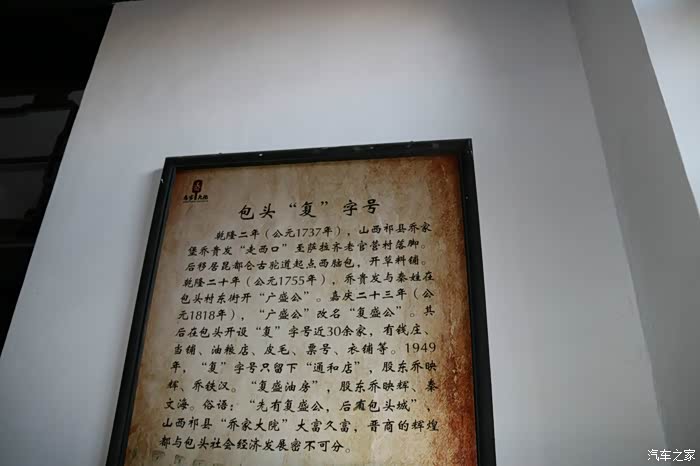 包头“复”字号
乾隆二年（公元1737年），山西祁县乔家
堡乔贵发“走西口”至萨拉齐老官营村落脚。
后移居昆都仑古驼道起点西脑包，开草料铺。
乾隆二十年（公元1755年），乔贵发与秦姓在
包头村东街开“广盛公”。嘉庆二十三年（公
元1818年），“广盛公”改名“复盛公”。其
后在包头开设“复”字号近30余家，有钱庄、
当铺、油粮店、皮毛、票号、衣铺等。1949
年，“复”字号只留下“通和店”，股东乔映
辉、乔铁汉。“复盛油房”股东乔映辉、秦
文海。俗语：“先有复盛公，后有包头城”、
山西祁县“乔家大院”大富久富，晋商的辉煌
都与包头社会经济发展密不可分。
汽车之家